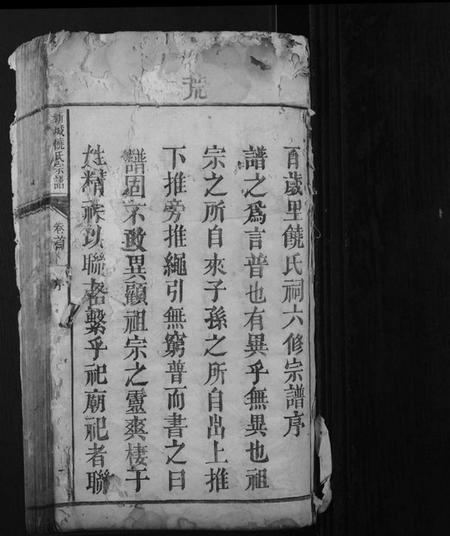 荒
百歲里饒氏祠六修宗譜序
譜之爲言普也有異乎無異也祖
宗之所自來子孫之所自出上推
下推旁推繩引無窮普而書之曰
譜固不敢異顧祖宗之靈爽棲于
姓精祲以聯格繫乎祀廟祀者聯
新城饒氏宗譜
卷首
序
一